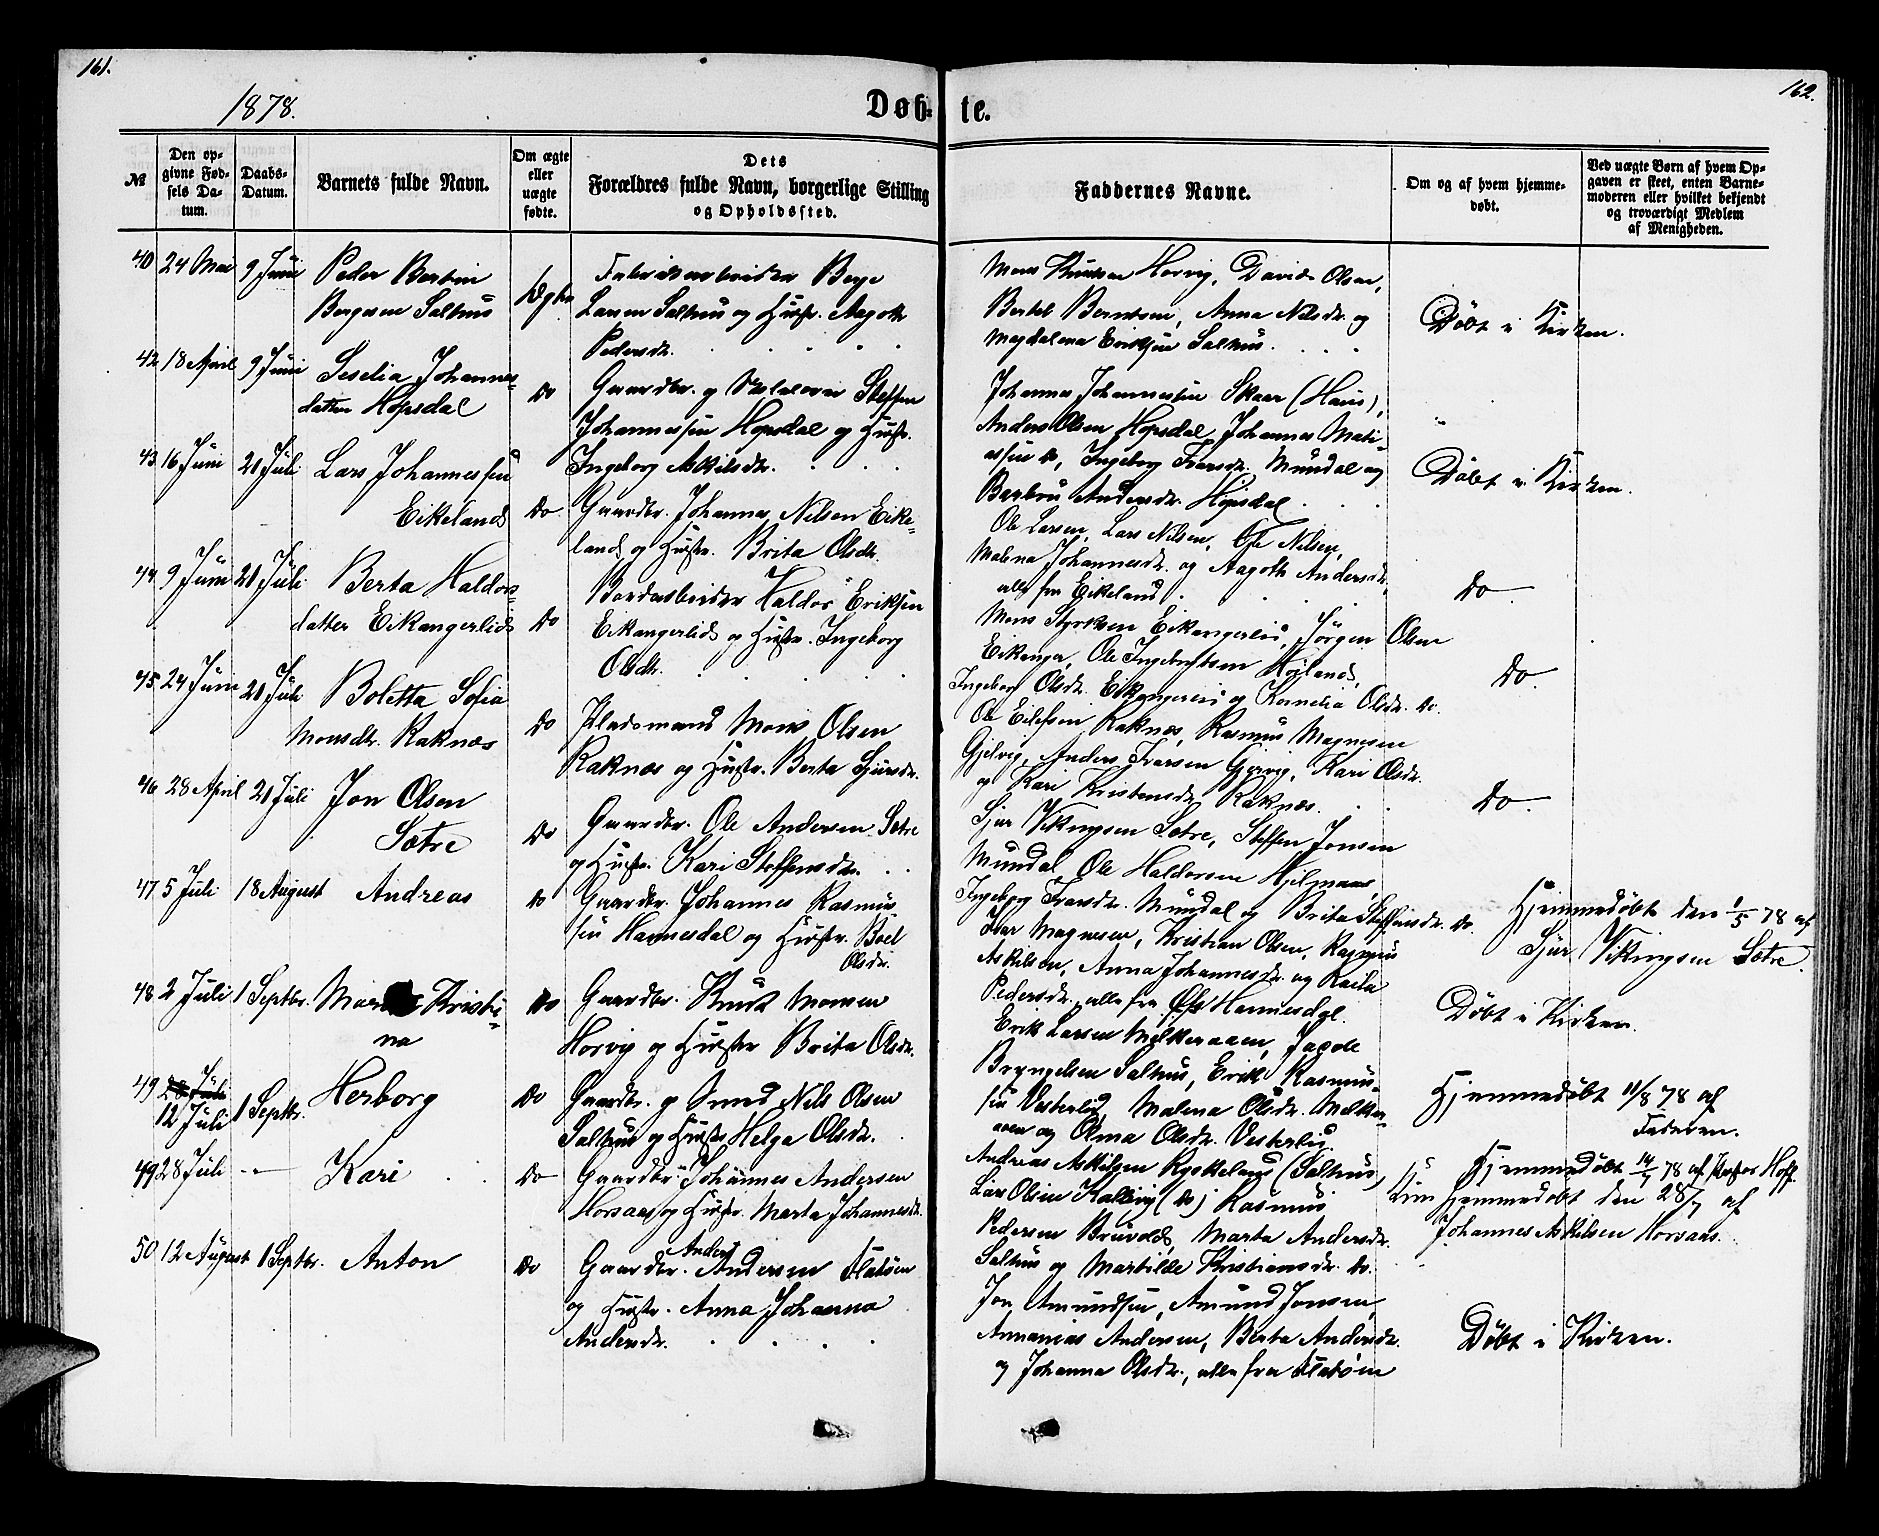 161.
162.
1878.
Døb-
te.
№
Den op-
givne Fød-
sels Da-
tum.
Daabs-
Datum.
Barnets fulde Navn.
Om ægte
eller
uægte
fødte.
Dets
Forældres fulde Navn, borgerlige Stilling
og Opholdssted.
Faddernes Navne.
Om og af hvem hjemme-
døbt.
Ved uægte Børn af hvem Op-
gaven er skeet, enten Barne-
moderen eller hvilket bekjendt
og troværdigt Medlem
af Menigheden.
40 24 Mai 9 Juni Peder Bertin
Bergesen Salhus
Ægte
Fabrikarbeider Berge
Larsen Salhus og Hustr. Aagoth
Pedersdr.
Mons Knutsen Horvig, David Olsen,
Bertel Berntsen, Anna Nilsdr. og
Magdalena Eriksen Salhus.
Døbt i Kirken.
42 18 April 9 Juni Seselia Johannes-
datter Hopsdal
Do
Gaardbr. og Skolelærer Steffen
Johannessen Hopsdal og Hustr.
Ingeborg Askilsdr.
Johannes Johannessen Skaar (Haus),
Anders Olsen Hopsdal, Johannes Mati-
assen do, Ingeborg Ivarsdr. Mundal og
Barbru Andersdr. Hopsdal.
"
43 16 Juni 21 Juli Lars Johannessen
Eikeland
Do
Gaardbr. Johannes Nilsen Eike-
land og Hustr. Brita Olsdr.
Ole Larsen, Lars Nilsen, Ole Nilsen,
Malena Johannesdr. og Aagoth Andersdr.
alle fra Eikeland.
Døbt i Kirken.
44 9 Juni 21 Juli Berta Haldors-
datter Eikangerlid
Do
Bordarbeider Haldor Eriksen
Eikangerlid og Hustr. Ingeborg
Olsdr.
Mons Styrksen Eikangerlid, Jørgen Olsen
Eikanger, Ole Ingebrigtsen Høiland,
Ingeborg Olsdr. Eikangerlid og Kornelia Olsdr. do.
Do.
45 24 Juni 21 Juli Boletta Sofia
Monsdr. Raknæs
Do
Pladsmand Mons Olsen
Raknæs og Hustr. Berta Sjursdr.
Ole Eilefsen Raknæs, Rasmus Magnesen
Gjelvig, Anders Ivarsen Gjervig, Kari Olsdr.
og Kari Kristensdr. Raknæs.
Do.
46 28 April 21 Juli Jon Olsen
Sætre
Do
Gaardbr. Ole Andersen Sætre
og Hustr. Kari Steffensdr.
Sjur Vikingsen Sætre, Steffen Jonsen
Mundal, Ole Haldorsen Hjelmaas,
Ingeborg Ivarsdr. Mundal og Brita Steffensdr. do.
Do.
47 5 Juli 18 August Andreas
do
Gaardbr. Johannes Rasmus-
sen Hannesdal og Hustr. Boel
Olsdr.
Ivar Magnesen, Kristian Olsen, Rasmus
Askilsen, Anna Johannesdr. og Kaila
Pedersdr., alle fra Hannesdal.
Hjemmedøbt den 1/5 78 af
Sjur Vikingsen Sætre.
48 2 Juli 1 Septbr. Kristi-
na
do
Gaardbr. Knut Monsen
Horvig og Hustr. Brita Olsdr.
Erik Larsen Mjelkeraaen, Jacob
Bryngelsen Salhus, Erik Rasmus-
sen Vesterlid, Malena Olsdr. Mjelker-
aaen og Olina Olsdr. Vesterlid
Døbt i Kirken.
49 28 Juli
12 Juli 1 Septbr. Herborg
Do
Gaardbr. og Smed Nils Olsen
Salhus og Hustr. Helga Olsdr.
Andreas Askilsen Ryskeland (Salhus),
Lars Olsen Kalvig (do) Rasmus
Pedersen Bruvold, Marta Andersdr.
Salhus og Martilde Kristiansdr. do.
Hjemmedøbt 11/8 78 af
Faderen.
49 28 Juli -"- Kari
Do
Gaardbr. Johannes Andersen
Horsaas og Hustr. Marta Johannesdr.
Hjemmedøbt 14/7 78 af Pastor Hoff.
Hjemmedøbt den 28/7 af
Johannes Askilsen Horsaas.
50 12 August 1 Septbr. Anton
Do
Anders
Gaardbr. Andersen Flatøen
og Hustr. Anna Johanna
Andersdr.
Jon Amundsen, Amund Jonsen,
Annanias Andersen, Berta Andersdr.
og Johanna Olsdr., alle fra Flatøen
Døbt i Kirken.